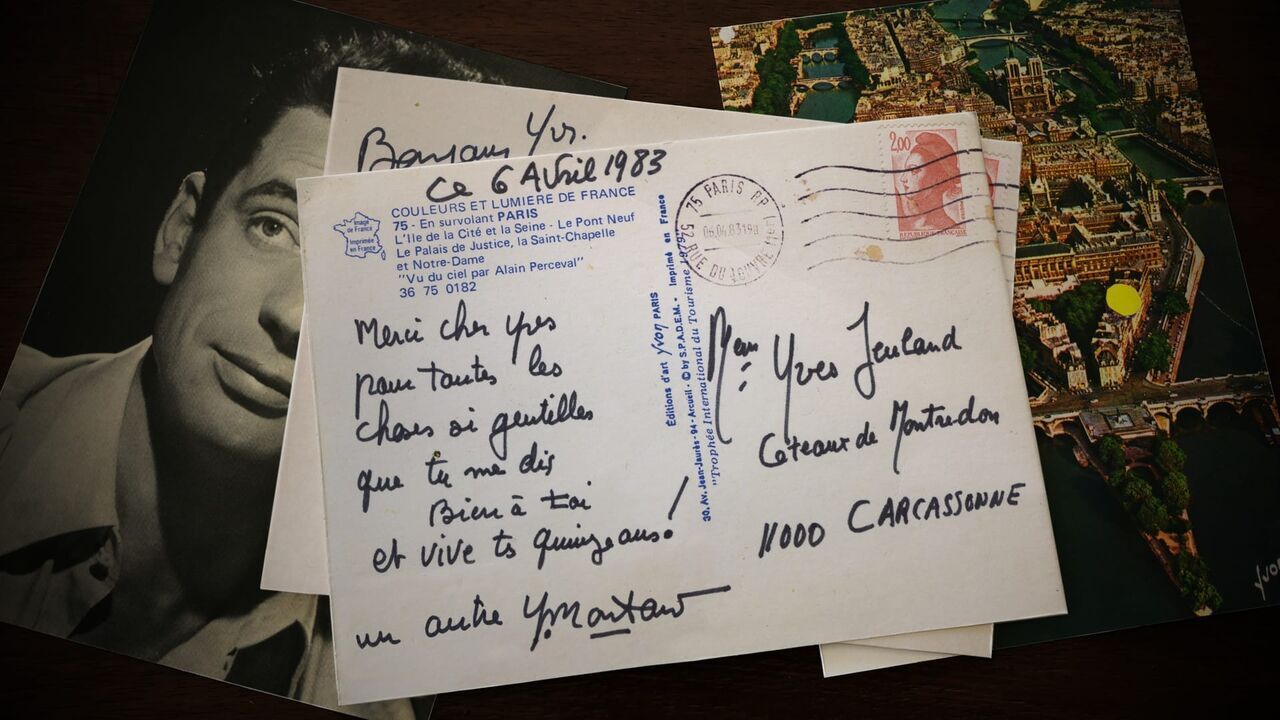 Bonjour Yves.
Ce 6 Avril 1983
COULEURS ET LUMIERE DE FRANCE
75 - En survolant PARIS
L'Ile de la Cité et la Seine - Le Pont Neuf
Le Palais de Justice, la Saint-Chapelle
et Notre-Dame
"Vu du ciel par Alain Perceval"
36 75 0182
Image de France
Imprimée en France
Merci cher Yves
pour toutes les
choses si gentilles
que tu me dis
Bien à toi
et vive ts quinze ans !
un autre Y. Montand
Editions d'art yvon PARIS
30, Av. Jean-Jaurès - 94 - Arcueil - © by S.P.A.D.E.M. - Imprimé en France
"Trophée International du Tourisme 1979"
75 PARIS RP
06.04.83 19H
52 RUE DU LOUVRE
2,00
REPUBLIQUE FRANCAISE
Yves Jeuland
Coteaux de Montredon
11000 CARCASSONNE
yvon